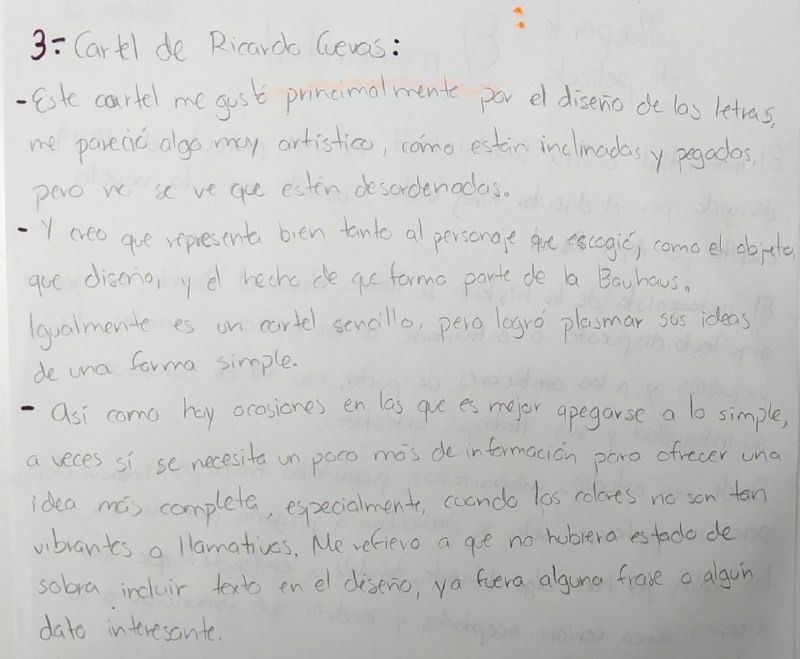 3.- Cartel de Ricardo Cuevas:
- Este cartel me gustó princimalmente por el diseño de las letras,
me pareció algo muy artístico, cómo están inclinadas y pegadas,
pero no se ve que estén desordenadas.
- Y creo que representa bien tanto al personaje que escogió, como el objeto
que diseño, y el hecho de que formo parte de la Bauhaus.
Igualmente es un cartel sencillo, pero logró plasmar sus ideas
de una forma simple.
- Así como hay ocasiones en las que es mejor apegarse a lo simple,
a veces sí se necesita un poco más de información para ofrecer una
idea más completa, especialmente, cuando los colores no son tan
vibrantes o llamativos. Me refiero a que no hubiera estado de
sobra incluir texto en el diseño, ya fuera alguna frase o algún
dato interesante.